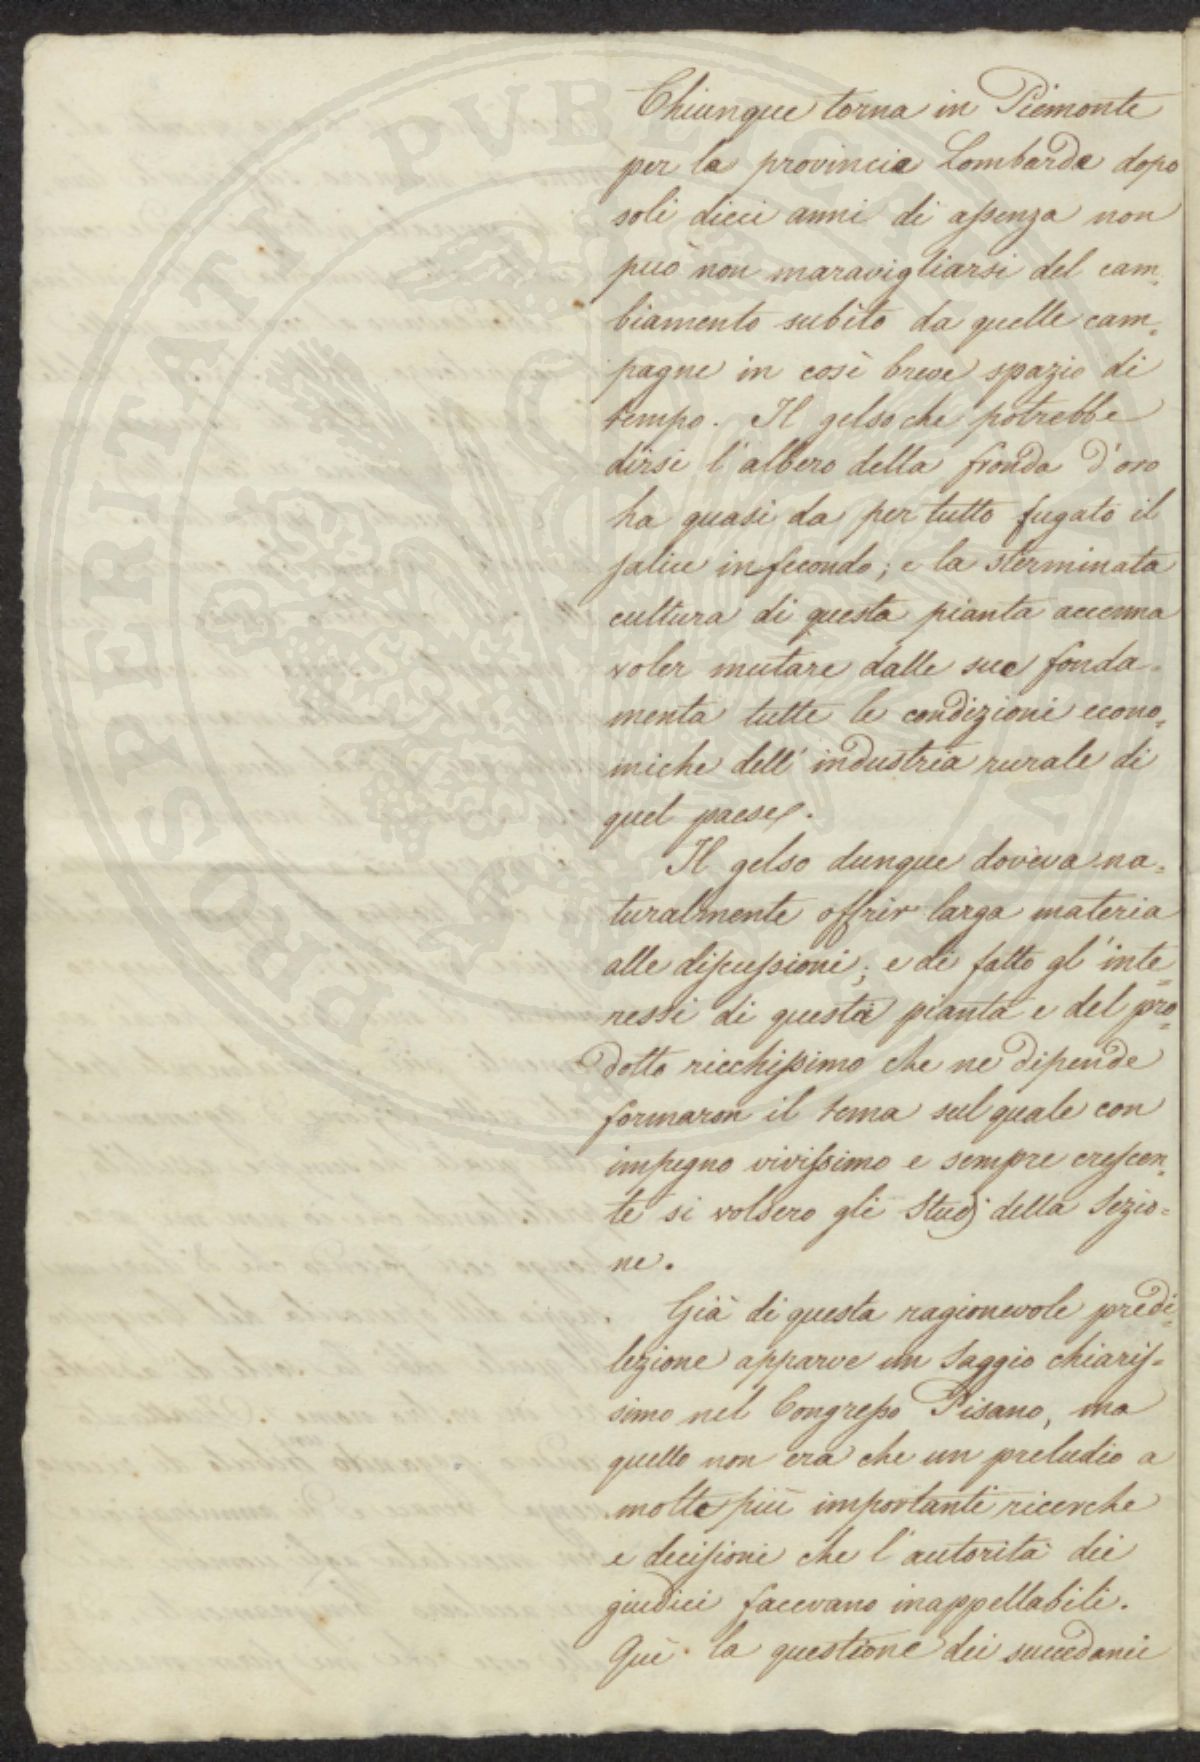 Chiunque torna in Piemonte
per la provincia Lombarda dopo
soli dieci anni di assenza non
può non maravigliarsi del cam=
biamento subìto da quelle cam=
pagne in così breve spazio di
tempo. Il gelso che potrebbe
dirsi l'albero della fronda d'oro
ha quasi da per tutto fugato il
salice infecondo; e la sterminata
cultura di questa pianta accenna
voler mutare dalle sue fonda=
menta tutte le condizioni econo=
miche dell'industria rurale di
quel paese.
Il gelso dunque doveva na=
turalmente offrir larga materia
alle discussioni; e di fatto gl'inte=
ressi di questa pianta e del pro=
dotto ricchissimo che ne dipende
formaron il tema sul quale con
impegno vivissimo e sempre crescen=
te si volsero gli Studj della Sezio=
ne.
Già di questa ragionevole predi=
lezione apparve un Saggio chiaris=
simo nel Congresso Pisano, ma
quello non era che un preludio a
molte più importanti ricerche
e decisioni che l'autorità dei
giudici facevano inappellabili.
Quì la questione dei succedanei
PROSPERITATI PUBLICAE